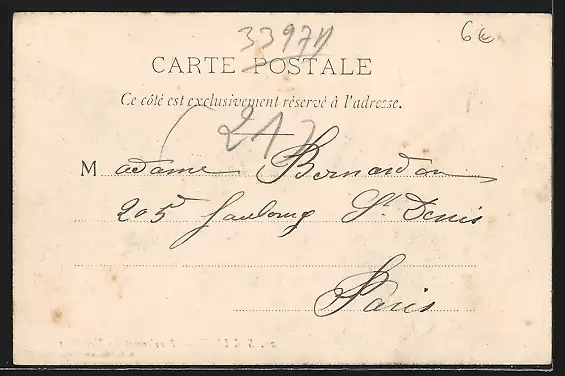 33971
6€
CARTE POSTALE
Ce côté est exclusivement réservé à l'adresse.
217
Madame Bernardon
205 faubourg St Denis
Paris